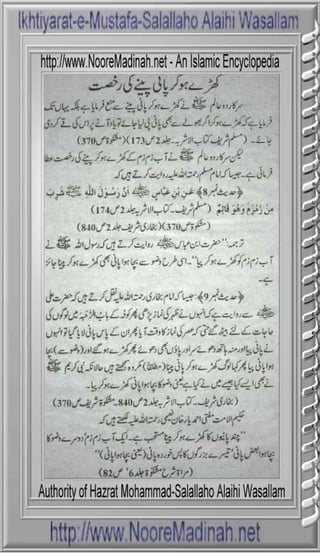 Ikhtiyarat-e-Mustafa-Salallaho Alaihi Wasallam
http://www.NooreMadinah.net - An Islamic Encyclopedia
کھڑے ہو کر پانی پینے کی رخصت
سرکار دو عالم ﷺ نے کھڑے ہو کر پانی پینے سے منع فرمایا ہے بلکہ یہاں تک
فرمایا ہے کہ کھڑے ہو کر اگر بھولے سے بھی پانی پی لیا جائے تو یاد آنے پر اس کی قے کر دی
جائے۔ (مسلم شریف کتاب الاشربہ۔جلد 2 ص 173) (مشکوٰۃ ص 370)
لیکن سرکار دو عالم ﷺ نے آب زم زم کے کھڑے ہو کر پینے کی رخصت عطا
فرمائی ہے۔ جیسا کہ امام مسلم رحمتہ اللہ علیہ روایت کرتے ہیں کہ
﴿حدیث نمبر 8﴾ عَنِ بْنِ عَبَّاسٍ اَنَّ رَسُوْلَ اللّٰهِ ﷺ شَرِبَ
مِنْ زَمْزَمَ وَهُوَ قَائِمٌ (مسلم شریف۔کتاب الاشربہ جلد 2 ص 174)
(مشکوٰۃ ص 370) (بخاری شریف۔جلد 2 ص 840)
ترجمہ: ”حضرت ابن عباس روایت کرتے ہیں کہ رسول اللہ ﷺ نے
آب زم زم کو کھڑے ہو کر پیا“۔ اسی طرح وضو سے بچا ہوا پانی بھی کھڑے ہو کر پینا جائز
ہے۔
﴿حدیث نمبر 9﴾: جیسا کہ امام بخاری رحمتہ اللہ علیہ نقل کرتے ہیں کہ حضرت علی
سے روایت ہے کہ انہوں نے ظہر کی نماز پڑھی پھر کوفہ کے باب الرَّحْبَہ میں لوگوں کی
حاجات کے لئے بیٹھ گئے حتی کہ عصر کی نماز کا وقت آیا پھر ان کے پاس پانی لایا گیا تو انہوں
نے پانی پیا اور منہ ہاتھ دھوئے سر اور پاؤں بھی دھوئے پھر کھڑے ہو گئے اور (وضو سے) بچا
ہوا پانی پیا پھر کہا لوگ کھڑے ہو کر پانی پینا (مطلقاً) مکروہ کہتے ہیں حالانکہ نبی کریم ﷺ
نے بھی ایسے کیا جیسے میں نے کیا ہے یعنی وضو کا بچا ہوا پانی کھڑے ہو کر پیا۔
(بخاری شریف۔کتاب الاشربہ جلد 2 ص 840۔ مشکوٰۃ شریف ص 370)
حکیم الامت مفتی احمد یار خان نعیمی رحمتہ اللہ علیہ لکھتے ہیں کہ
”چند پانیوں کا کھڑے ہو کر پینا مستحب ہے۔ ایک آب زم زم دوسرے وضو کا
بچا ہوا بعض پانی‘ تیسرے بزرگوں کا پس خوردہ پانی (یعنی بچا ہوا پانی)“
(مراۃ شرح مشکوٰۃ جلد 6‘ ص 82)
Authority of Hazrat Mohammad-Salallaho Alaihi Wasallam
http://www.NooreMadinah.net